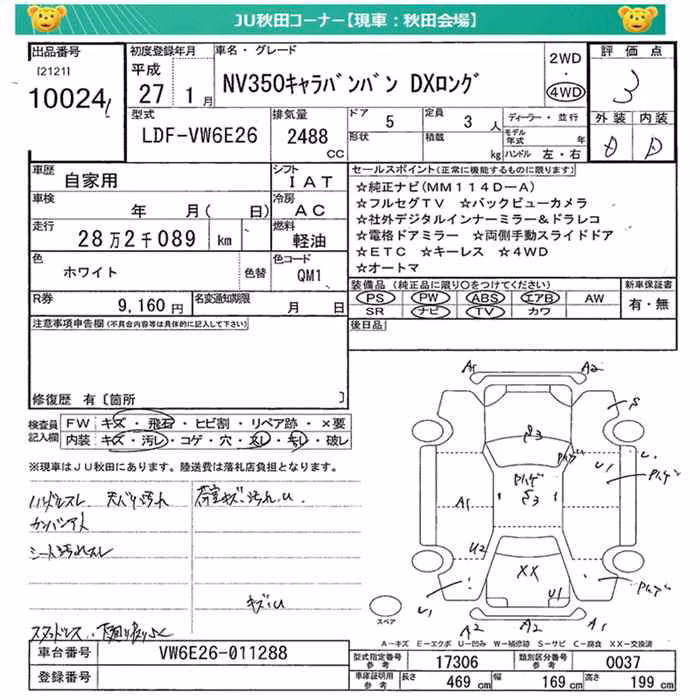 JU秋田コーナー【現車：秋田会場】
出品番号
[2121]
10024
初度登録年月
平成
27 1月
車名・グレード
NV350キャラバンバン DXロング
2WD
・
4WD
評価点
3
外装 内装
D D
型式
LDF-VW6E26
排気量
2488
CC
ドア 5
定員 3 人
形状
積載 kg
ディーラー・並行
モデル年式 年
ハンドル 左・右
車歴
自家用
シフト
IAT
車検
年 月( 日)
冷房
AC
走行
28万2千089 km
燃料
軽油
色
ホワイト
色替
色コード
QM1
R券
9,160円
名変通知期限
月 日
セールスポイント(正常に機能するものに限ります)
☆純正ナビ(MM114D-A)
☆フルセグTV ☆バックビューカメラ
☆社外デジタルインナーミラー&ドラレコ
☆電格ドアミラー ☆両側手動スライドドア
☆ETC ☆キーレス ☆4WD
☆オートマ
装備品 (純正品に限り○をつけてください)
PS PW ABS エアB AW
SR ナビ TV カワ
新車保証書
有・無
注意事項申告欄(不具合内容等は具体的に記入して下さい)
後日品
修復歴 有[箇所 ]
検査員
記入欄
FW キズ・飛石・ヒビ割・リペア跡・×要
内装 キズ・汚レ・コゲ・穴・スレ・劣レ・破レ
※現車はJU秋田にあります。陸送費は落札店負担となります。
ハンドルスレ 天バリ汚れ
荷室キズ汚れU
カンバンアト
シート汚れスレ
キズU
A1
A2
S
S3
ハゲ
U1
ハゲ
ハゲ
S3
A1
U2
XX
U1
U1
ハゲ
A2
A2
A1
スペア
A－キズ E－エクボ U－凹み W－補修跡 S－サビ C－腐食 XX－交換済
車台番号
VW6E26-011288
登録番号
型式指定番号
参考
17306
類別区分番号
参考
0037
車庫証明用
参考
長さ 469 cm
幅 169 cm
高さ 199 cm